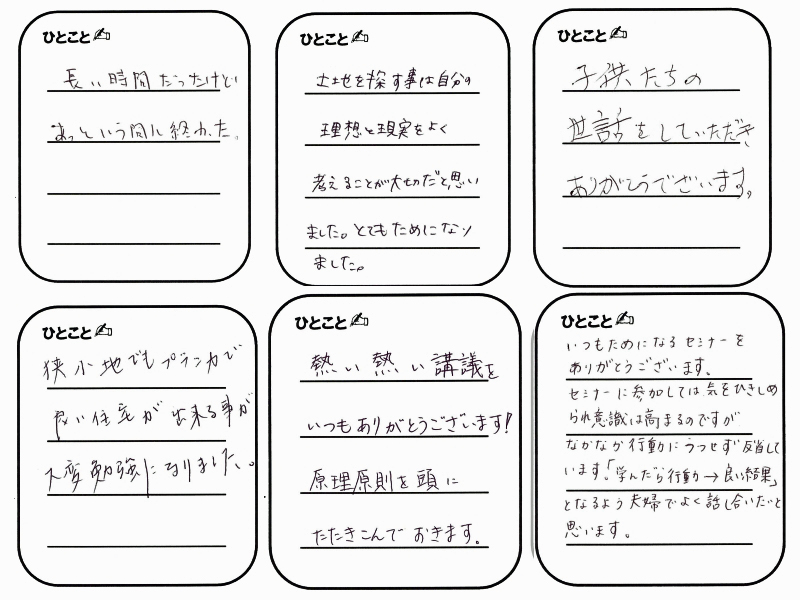 ひとこと
長い時間だったけど
あっという間に終わった。
ひとこと
土地を探す事は自分の
理想と現実をよく
考えることが大切だと思い
ました。とてもためになり
ました。
ひとこと
子供たちの
世話をしていただき
ありがとうございます。
ひとこと
狭小地でもプランカで
良い住宅が出来る事が
大変勉強になりました。
ひとこと
熱い熱い講議を
いつもありがとうございます!
原理原則を頭に
たたきこんでおきます。
ひとこと
いつもためになるセミナーを
ありがとうございます。
セミナーに参加しては気をひきしめ
られ意識は高まるのですが
なかなか行動にうつせず反省して
います。「学んだら行動→良い結果」
となるよう夫婦でよく話し合いたいと
思います。